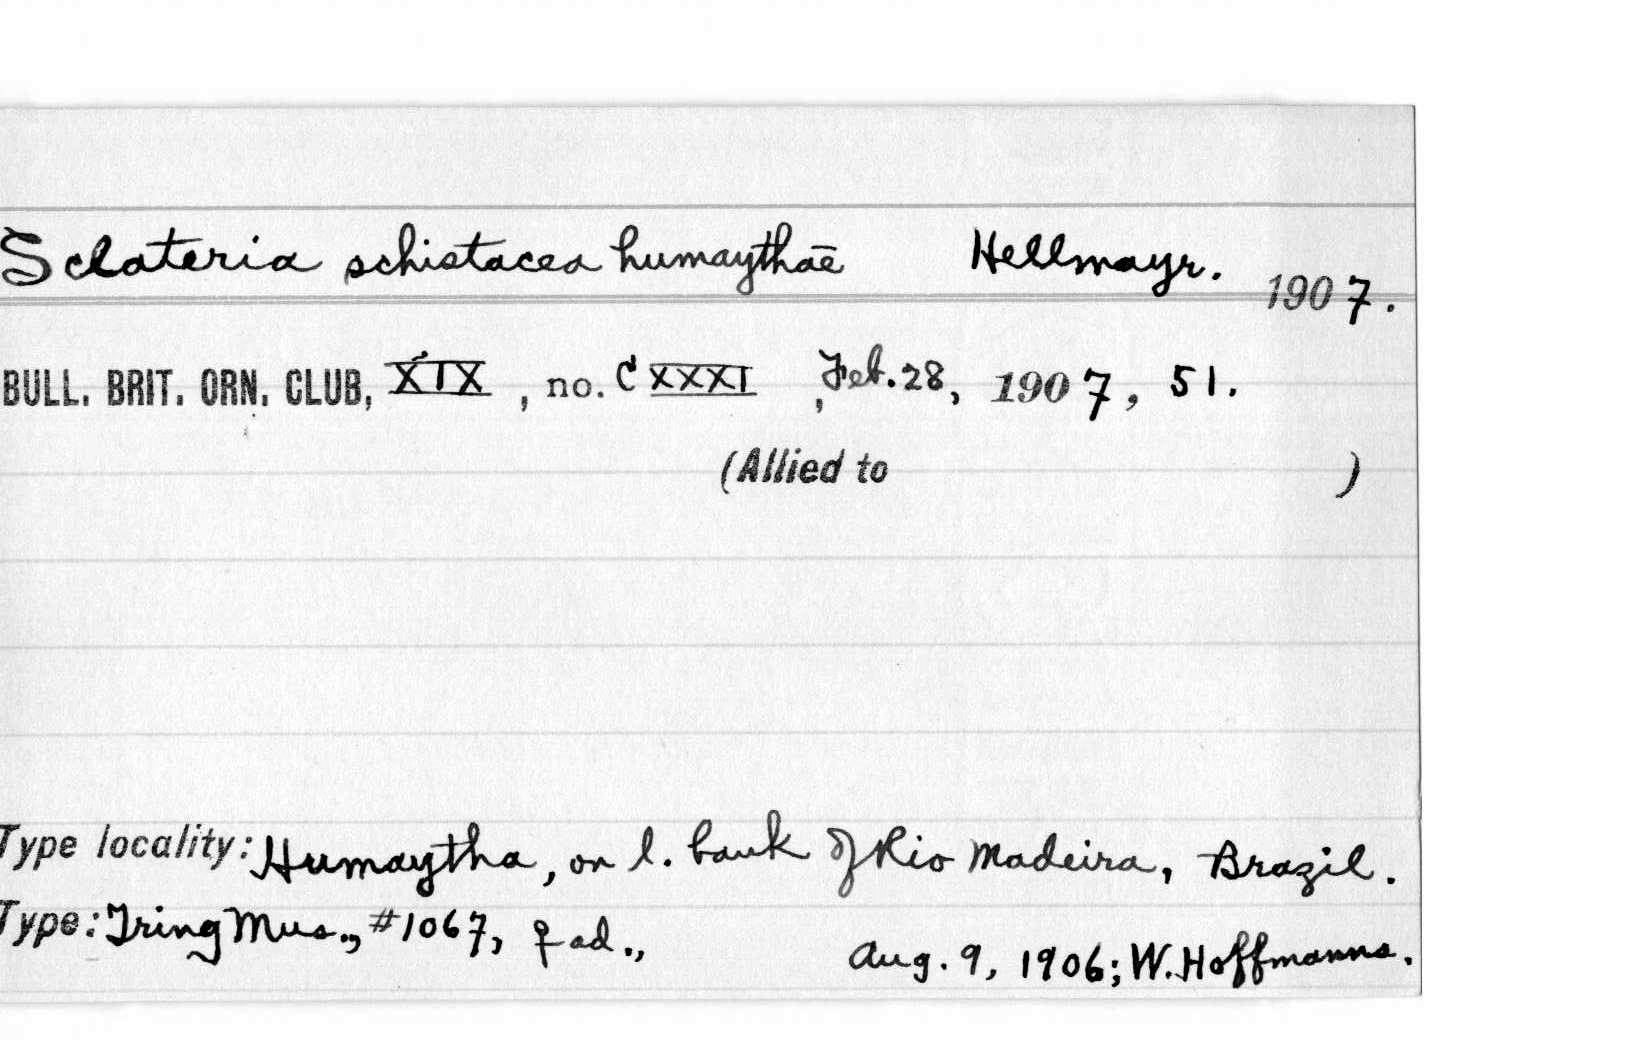 Sclateria schistacea humaythae Hellmayr. 1907.
BULL. BRIT. ORN. CLUB, XIX, no. CXXXI, Feb. 28, 1907, 51.
(Allied to )
Type locality: Humaytha, on l. bank of Rio Madeira, Brazil.
Type: Tring Mus., #1067, ♀ ad., Aug. 9, 1906; W. Hoffmanns.